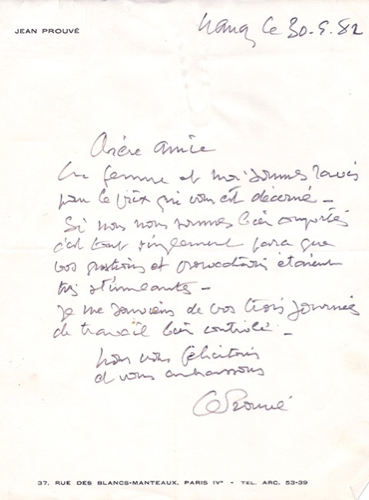 JEAN PROUVÉ
Nancy le 30.5.82
Chère amie
Ma femme et moi sommes ravis
pour le prix qui vous est décerné _
Si nous nous sommes bien comportés
c'est tout simplement parce que
vos questions et provocations étaient
très stimulantes _
Je me souviens de vos trois journées
de travail bien contrôlé _
Nous vous félicitons
et vous embrassons
Prouvé
37, RUE DES BLANCS-MANTEAUX, PARIS IVe - TEL. ARC. 53-39